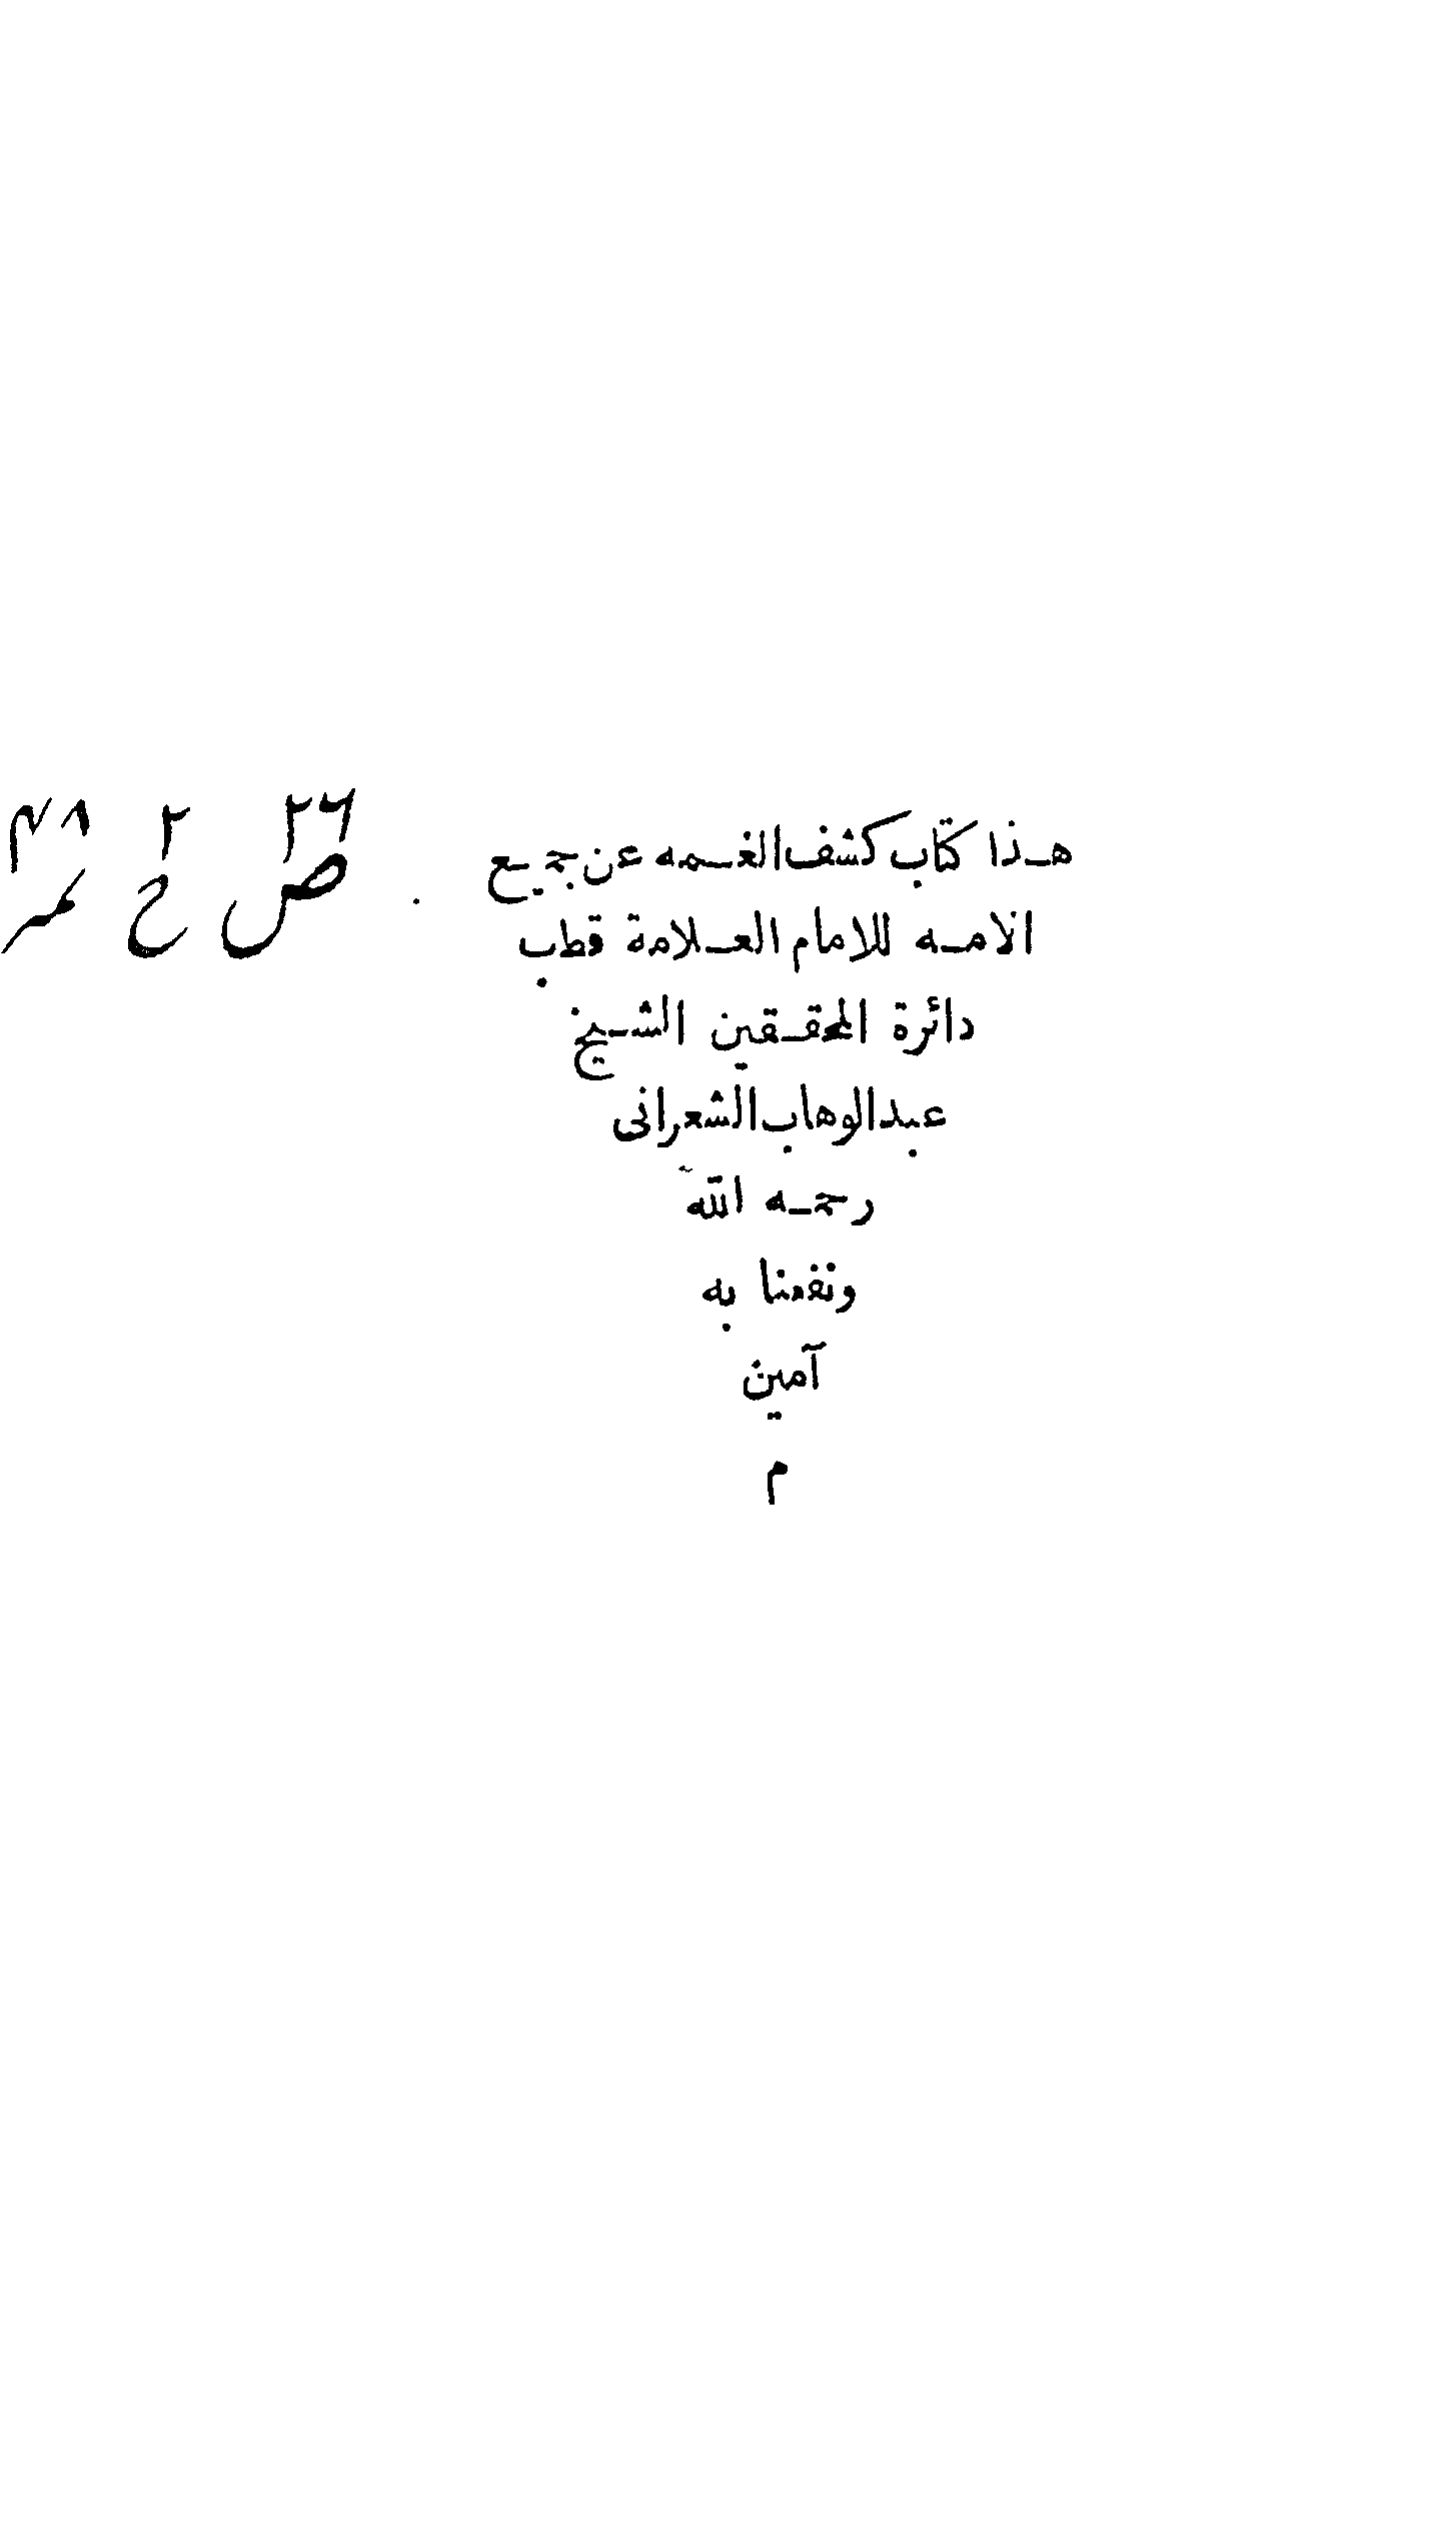 هذا كتاب كشف الغمه عن جميع
الامه للامام العلامة قطب
دائرة المحققين الشيخ
عبد الوهاب الشعرانى
رحمه الله
ونفعنا به
آمين
م
٢٦ ٢
ص ح